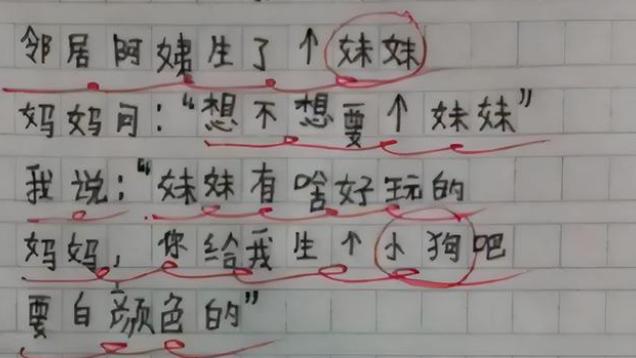 邻居阿姨生了个妹妹
妈妈问：“想不想要个妹妹”
我说：“妹妹有啥好玩的
妈妈，你给我生个小狗吧
要白颜色的”